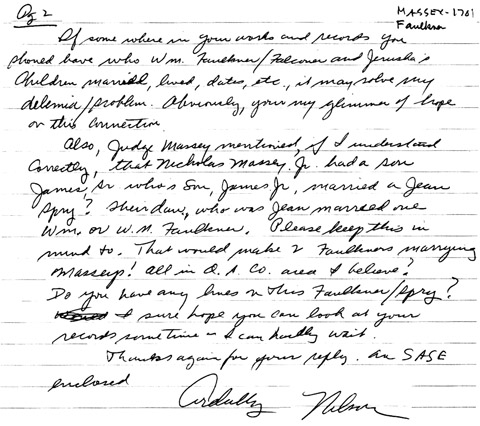 Pg 2
MASSEY-1701
Faulkner
If some where in your works and records you
phoned have who Wm. Faulkner/Falconer and Jerusha's
Children married, lived, dates, etc., it may solve my
delemia/problem. Obviously, your my glimmer of hope
on this connection.
Also, Judge Massey mentioned, if I understood
correctly, that Nicholas Massey, Jr. had a son
James, Sr who's Son, James Jr, married a Jean
Spry? Their dau, who was Jean married one
Wm. or W.M. Faulkner. Please keep this in
mind to. That would make 2 Faulkners marrying
Masseys! All in Q. A. Co. area I believe?
Do you have any lines on this Faulkner/Spry?
I sure hope you can look at your
records sometime - I can hardly wait.
Thanks again for your reply. an SASE
enclosed
Nelson